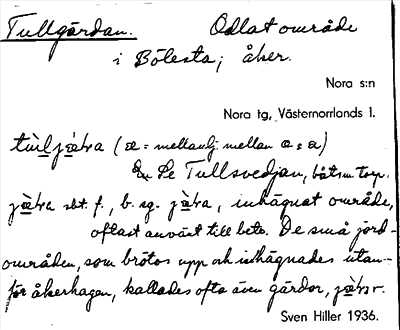 Tullgärdan. Odlat område
i Bölesta; åker.
Nora s:n
Nora tg, Västernorrlands l.
(æ = mellanlj. mellan a o. ä)
Se Tullsvedjan, båtsm. torp.
sbt. f., b. sg. inhägnat område,
oftast använt till bete. De små jord-
områden, som brötos upp och inhägnades utan-
för åkerhagen, kallades ofta även gärdor,
Sven Hiller 1936.